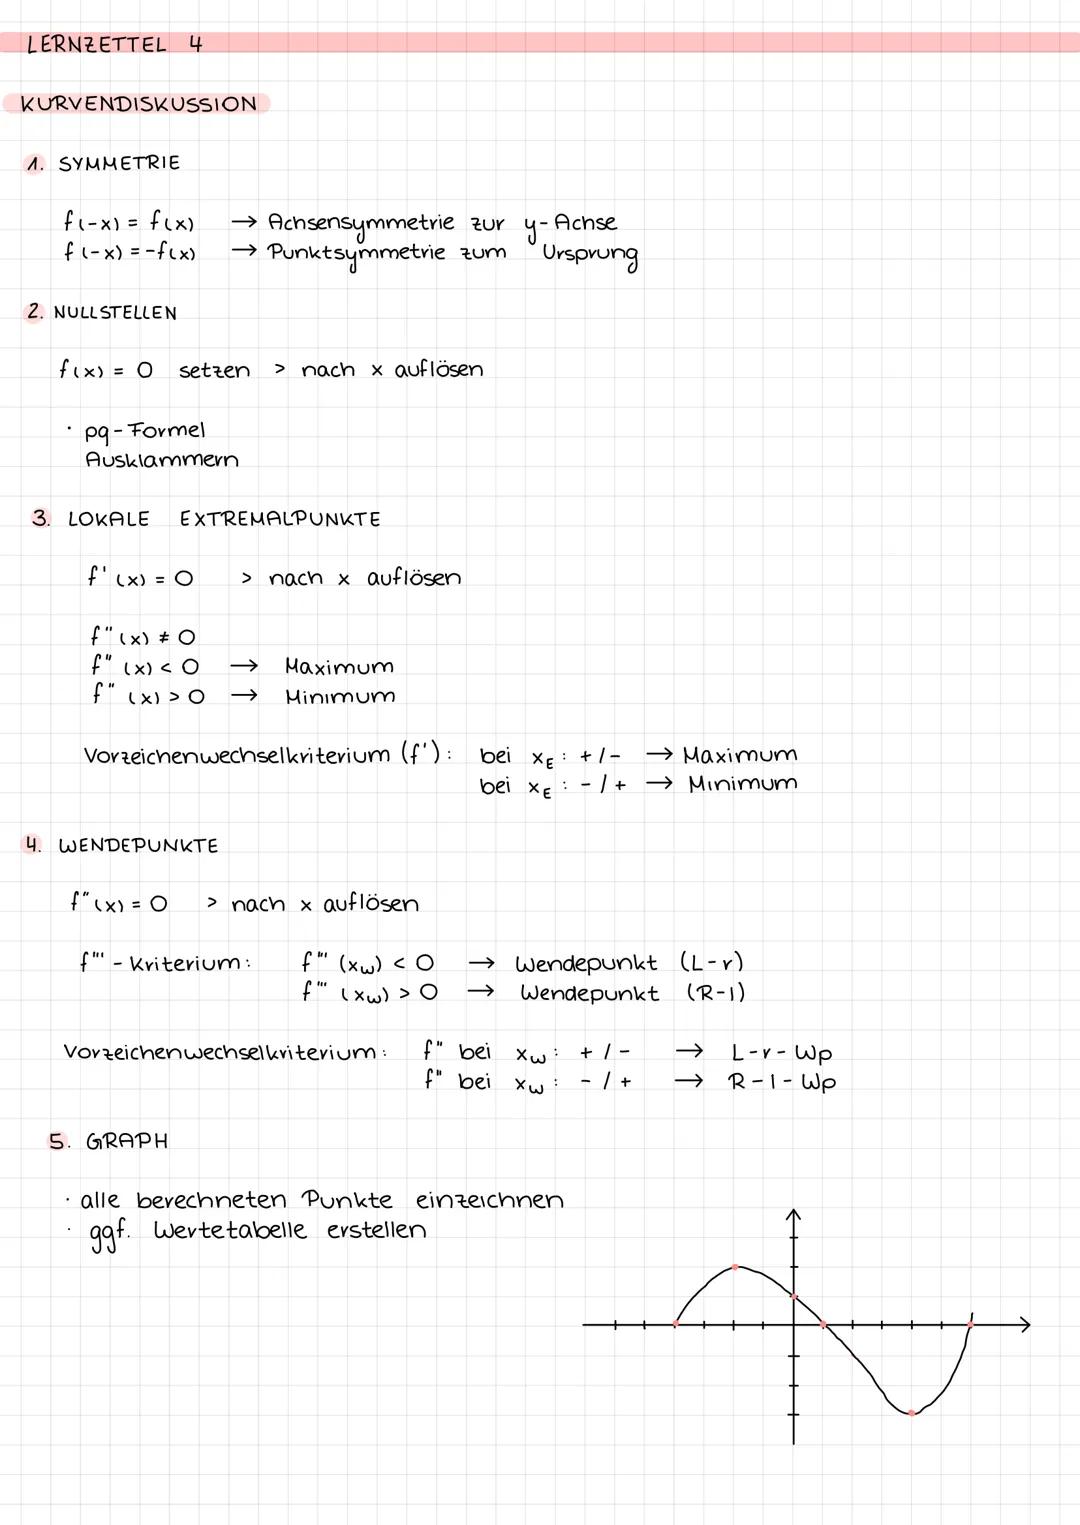 LERNZETTEL 4
KURVENDISKUSSION
1. SYMMETRIE
f(-x) = f(x) → Achsensymmetrie zur y-Achse
f(-x) = -f(x) → Punktsymmetrie zum Ursprung
2. NULLSTELLEN
f(x) = 0 setzen > nach x auflösen
· pq-Formel
Ausklammern
3. LOKALE EXTREMALPUNKTE
f'(x) = 0 > nach x auflösen
f"(x) ≠ 0
f"(x) < 0 → Maximum
f"(x) > 0 → Minimum
Vorzeichenwechselkriterium (f'): bei x_E: +/- → Maximum
bei x_E: -/+ → Minimum
4. WENDEPUNKTE
f"(x) = 0 > nach x auflösen
f"'-Kriterium: f"'(x_w) < 0 → Wendepunkt (L-r)
f"'(x_w) > 0 → Wendepunkt (R-l)
Vorzeichenwechselkriterium: f" bei x_w: +/- → L-r-Wp
f" bei x_w: -/+ → R-l-Wp
5. GRAPH
· alle berechneten Punkte einzeichnen
· ggf. Wertetabelle erstellen